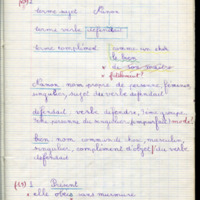 terme sujet Nanon
terme verbe défendait
terme complément comme un chien
le bien
de son maître
fidèlement?
Nanon nom propre de personne, féminin,
singulier, sujet du verbe défendait
défendait verbe défendre, 3ème groupe,
3ème personne du singulier, imparfait (mode)
bien nom commun de chose, masculin,
singulier, complément d'objet du verbe
défendait
Présent
elle obéit sans murmure